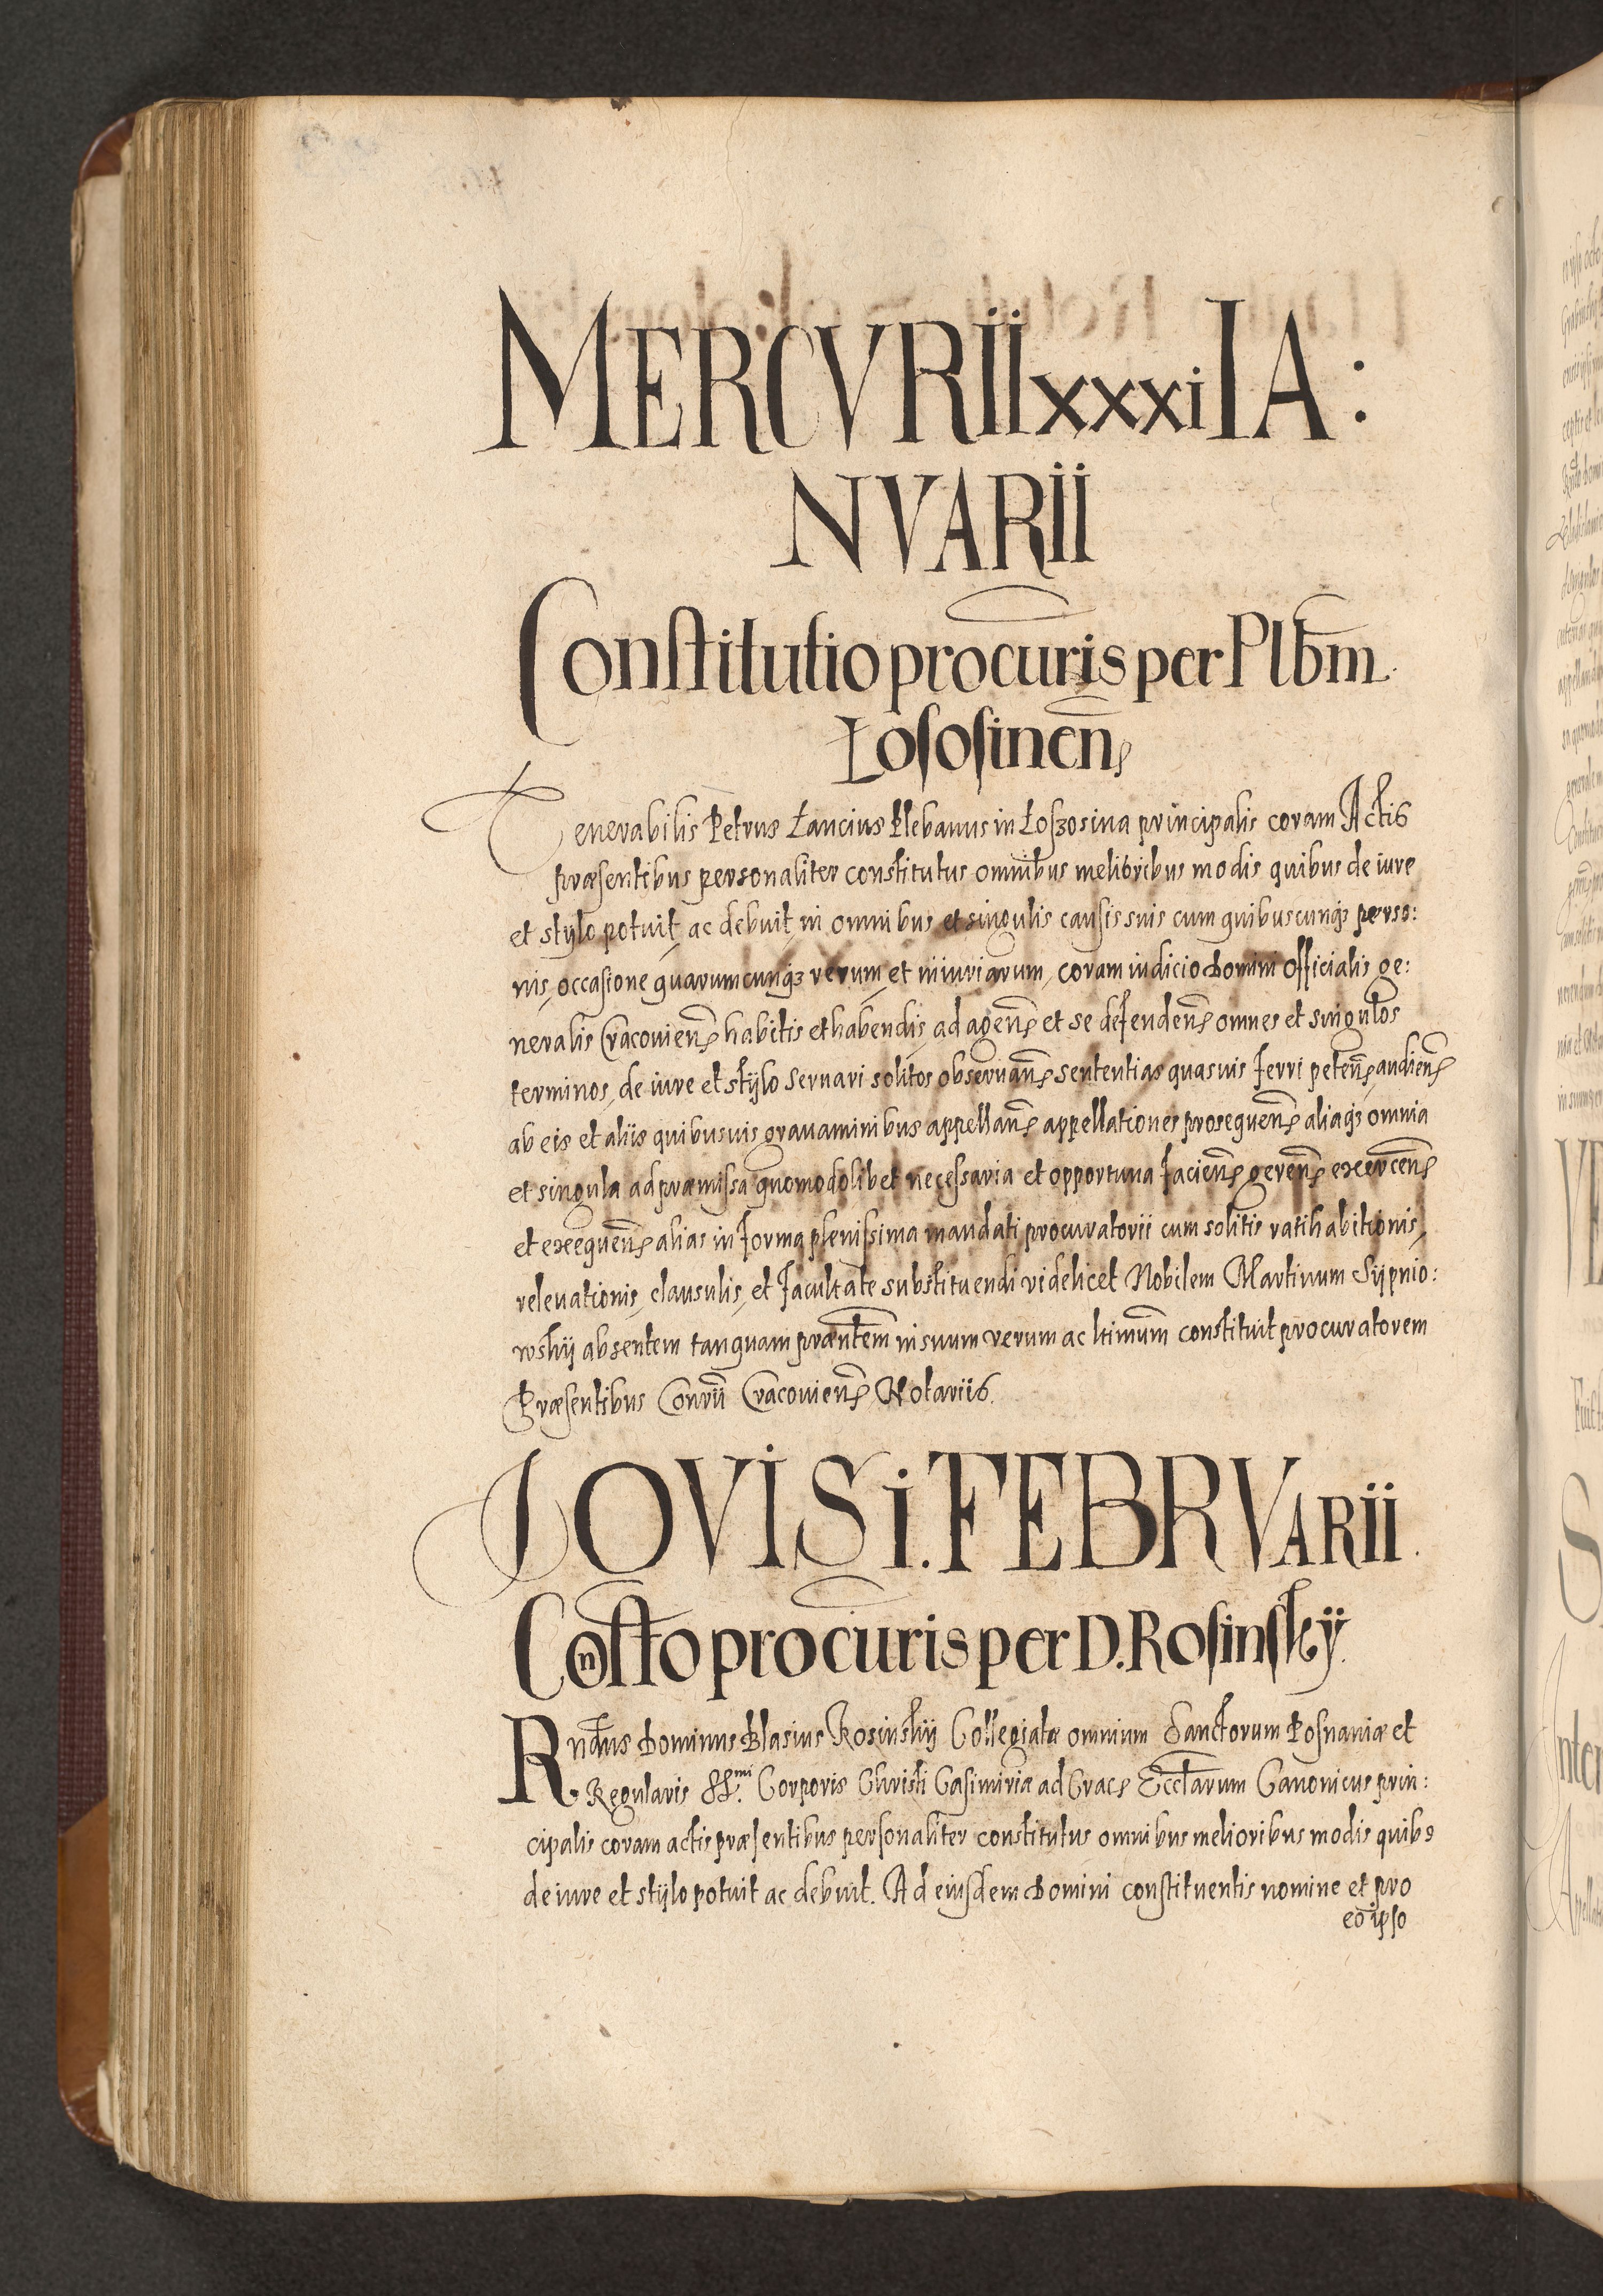 MERCVRII xxxi IA:
NVARII
Constitutio procuris per Plbm.
Łososinen̄
Venerabilis Petrus Łancius Plebanus in Łoszosina principalis coram Actis
præsentibus personaliter constitutus omnibus melioribus modis quibus de iure
et stÿlo potuit, ac debuit, in omnibus et singulis causis suis cum quibuscunq₃ perso:
nis, occasione quarumcunq₃ rerum, et iniuriarum, coram iudicio Domini Officialis ge:
neralis Cracouien̄ habitis et habendis, ad agen̄ et se defenden̄ omnes et singulos
terminos, de iure et stÿlo seruari solitos obseruan̄ sententias quasuis ferri peten̄, audien̄
ab eis et aliis quibusuis grauaminibus appellan̄ appellationes prosequen̄ aliaq₃ omnia
et singula ad præmissa quomodolibet necessaria et opportuna facien̄ geren̄ exercen̄
et exequen̄ alias in forma plenissima mandati procuratorii cum solitis ratihabitionis,
releuationis, clausulis, et facultate substituendi videlicet Nobilem Martinum Sÿpnio:
wskÿ absentem tanquam præntem in suum verum ac ltimum constituit procuratorem
Præsentibus Conrÿ Cracouien̄ Notariis.
IOVIS i. FEBRVARII.
Constto procuris per D. Rosinskÿ.
Rndus Dominus Blasius Rosinskÿ Collegiatæ omnium Sanctorum Posnaniæ et
Regularis SS.mi Corporis Christi Casimiriæ ad Crac Eccłarum Canonicus prin:
cipalis coram actis præsentibus personaliter constitutus omnibus melioribus modis quibs
de iure et stÿlo potuit ac debuit. Ad eiusdem Domini constituentis nomine et pro
eo ipso